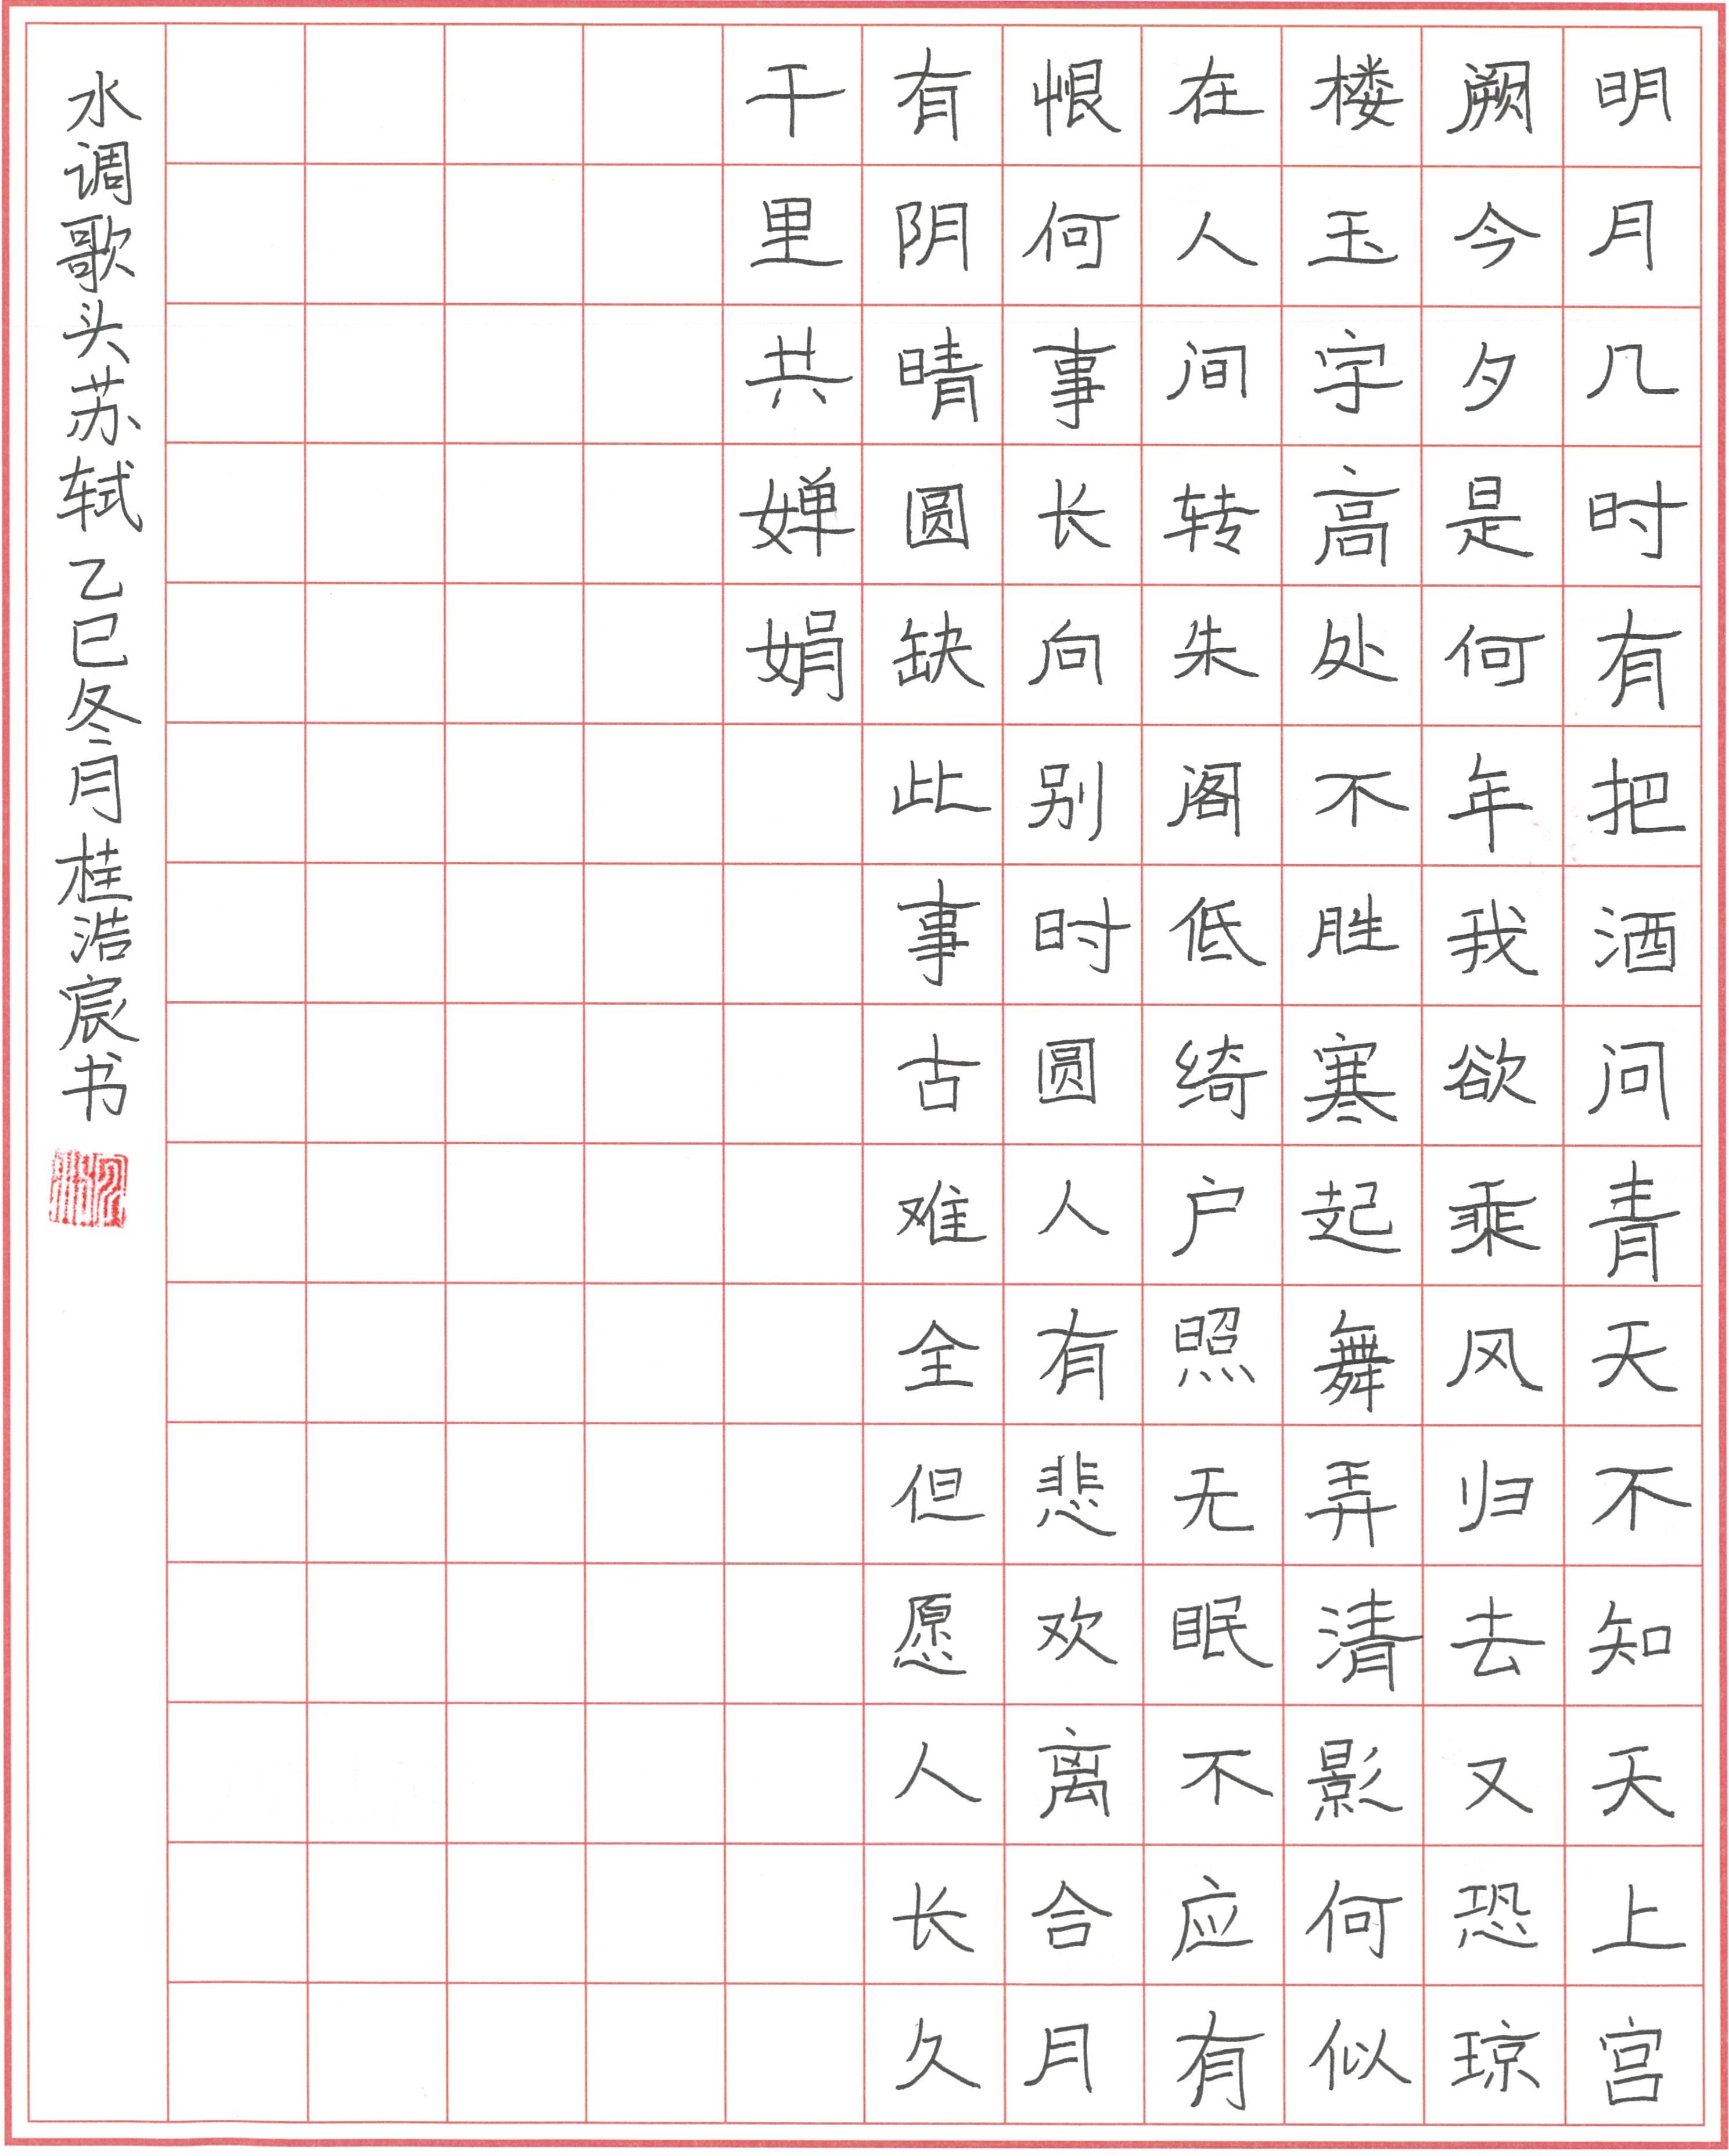 明月几时有把酒问青天不知天上宫
阙今夕是何年我欲乘风归去又恐琼
楼玉宇高处不胜寒起舞弄清影何似
在人间转朱阁低绮户照无眠不应有
恨何事长向别时圆人有悲欢离合月
有阴晴圆缺此事古难全但愿人长久
千里共婵娟
水调歌头苏轼乙巳冬月桂浩宸书